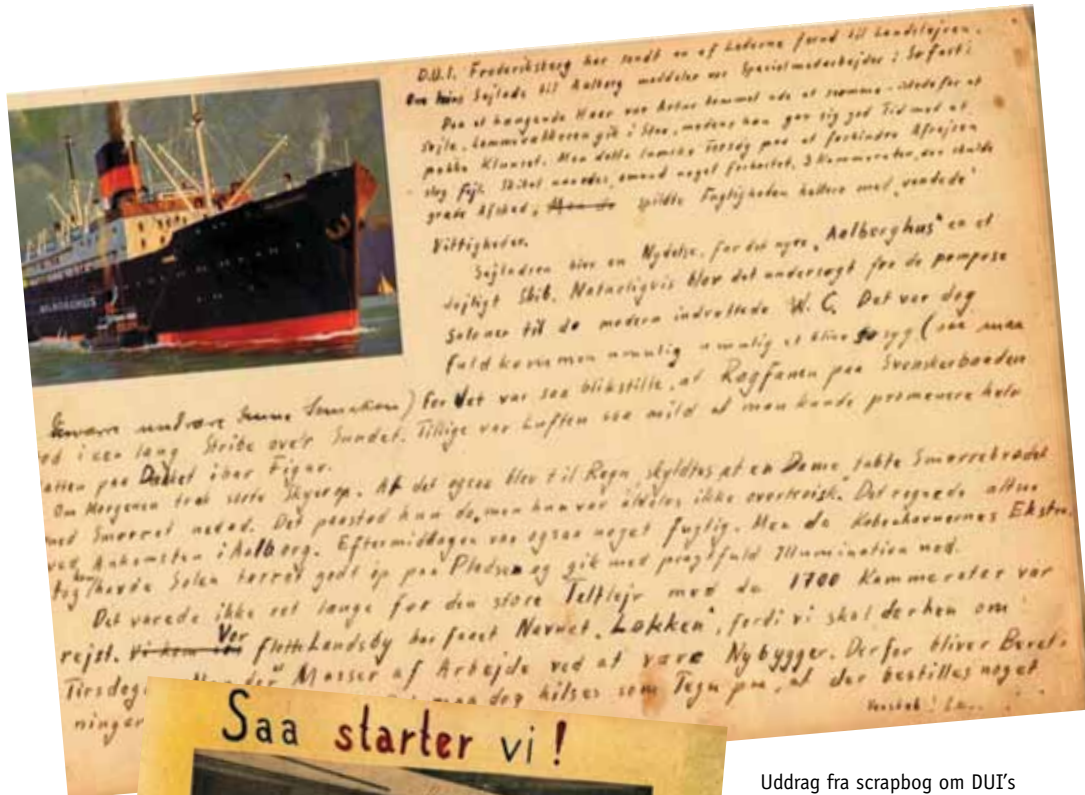 D.U.I. Frederiksberg har sendt en af Lederne forud til Landslejren.
Om hans Sejlads til Aalborg meddeler vor Specialmedarbejder i Søfart:
Paa et hængende Haar var Artur kommet ud at svømme istedefor at
sejle. Lommevækkeren gik i Staa, medens han gav sig god Tid med at
pakke Klunset. Men dette lumske Forsøg paa at forhindre Afrejsen
slog fejl. Skibet naaedes, omend noget forhastet. 3 Kammerater, der skulde
græde Afsked, Men de spildte Fugtigheden hellere med "vendede"
Vittigheder.
Sejladsen blev en Nydelse, for det nye "Aalborghus" en et
dejligt Skib. Naturligvis blev det undersøgt fra de pompøse
Saloner til de modern indrettede W.C. Det var dog
fuldkommen umulig umulig at blive søsyg (
) For det var saa blikstille, at Røgfanen paa Svenskerbaaden
i een lang Stribe over Sundet. Tillige var Luften saa mild at man kunde promenere hele
paa Dækket ibar Figur.
Om Morgenen trak sorte Skyer op. At det ogsaa blev til Regn, skyldtes at en Dame tabte Smørrebrødet
med Smørret nedad. Det paastod hun da, men hun var aldeles ikke overtroisk. Det regnede altsaa
ved Ankomsten i Aalborg. Eftermiddagen var ogsaa noget fugtig. Men da Københavnernes Ekstra-
tog kom havde Solen tørret godt op paa Pladsen og gik med pragtfuld Illumination ned.
Det varede ikke ret længe før den store Teltlejr med de 1700 Kammerater var
rejst. Vi kom Vor flotte Landsby har faaet Navnet "Løkken", fordi vi skal derhen om
Tirsdagen. Masser af Arbejde ved at være Nybygger. Derfor bliver Beret-
ninger maa dog hilses som Tegn paa, at der bestilles noget
Venskab!
AALBORGHUS
Saa starter vi!
Uddrag fra scrapbog om DUI's